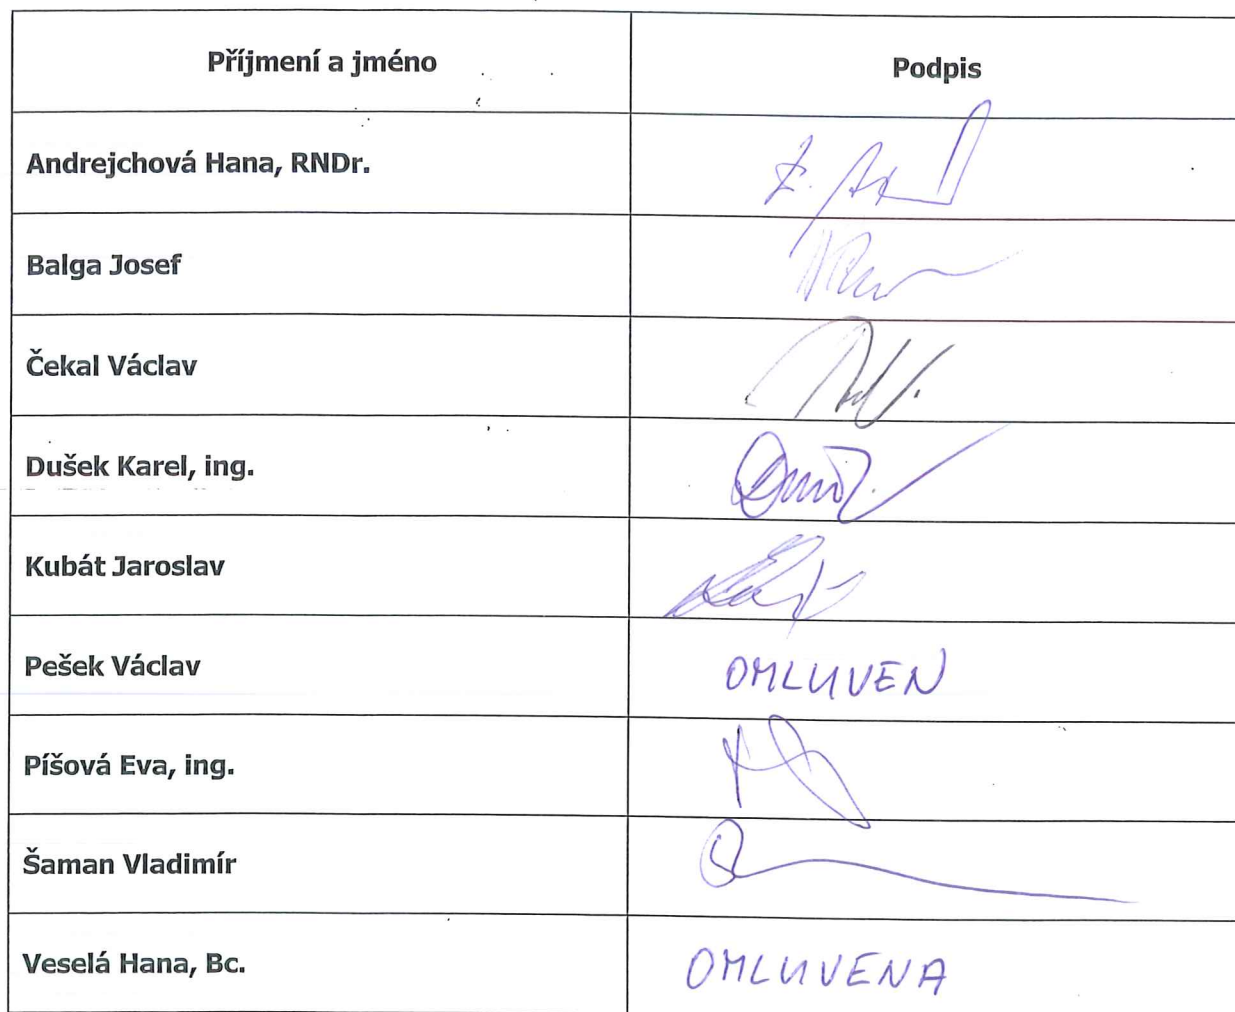 Příjmení a jméno
Podpis
Andrejchová Hana, RNDr.
Balga Josef
Čekal Václav
Dušek Karel, ing.
Kubát Jaroslav
Pešek Václav
OMLUVEN
Píšová Eva, ing.
Šaman Vladimír
Veselá Hana, Bc.
OMLUVENA